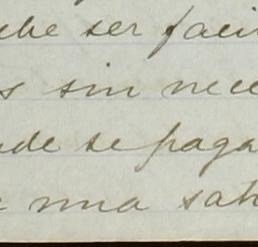 ebe ser faci
s sin nece
de se paga
una sat